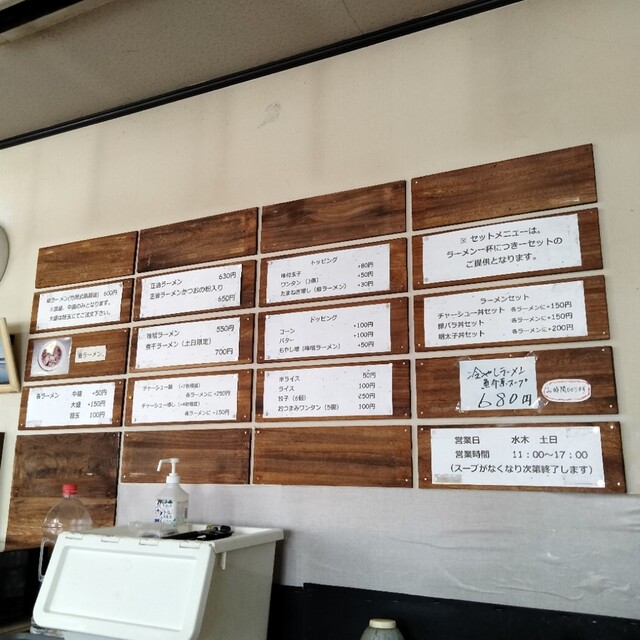 600円
大盛は替玉にてご注文下さい。
各ラーメン 中盛 +50円
大盛 +150円
替玉 100円
正油ラーメン 630円
正油ラーメンかつおの粉入り
650円
味噌ラーメン 550円
煮干ラーメン(土日限定)
700円
各ラーメンに+250円
各ラーメンに+150円
トッピング
味付玉子 +80円
ワンタン(3個) +50円
+30円
トッピング
コーン +100円
バター +100円
もやし増(味噌ラーメン) +50円
半ライス 50円
ライス 100円
餃子(6個) 250円
おつまみワンタン(5個) 100円
※セットメニューは、
ラーメン一杯につき一セットの
ご提供となります。
ラーメンセット
チャーシュー丼セット 各ラーメンに+150円
豚バラ丼セット 各ラーメンに+150円
明太子丼セット 各ラーメンに+200円
冷やしラーメン
680円
営業日 水木 土日
営業時間 11:00~17:00
(スープがなくなり次第終了します)